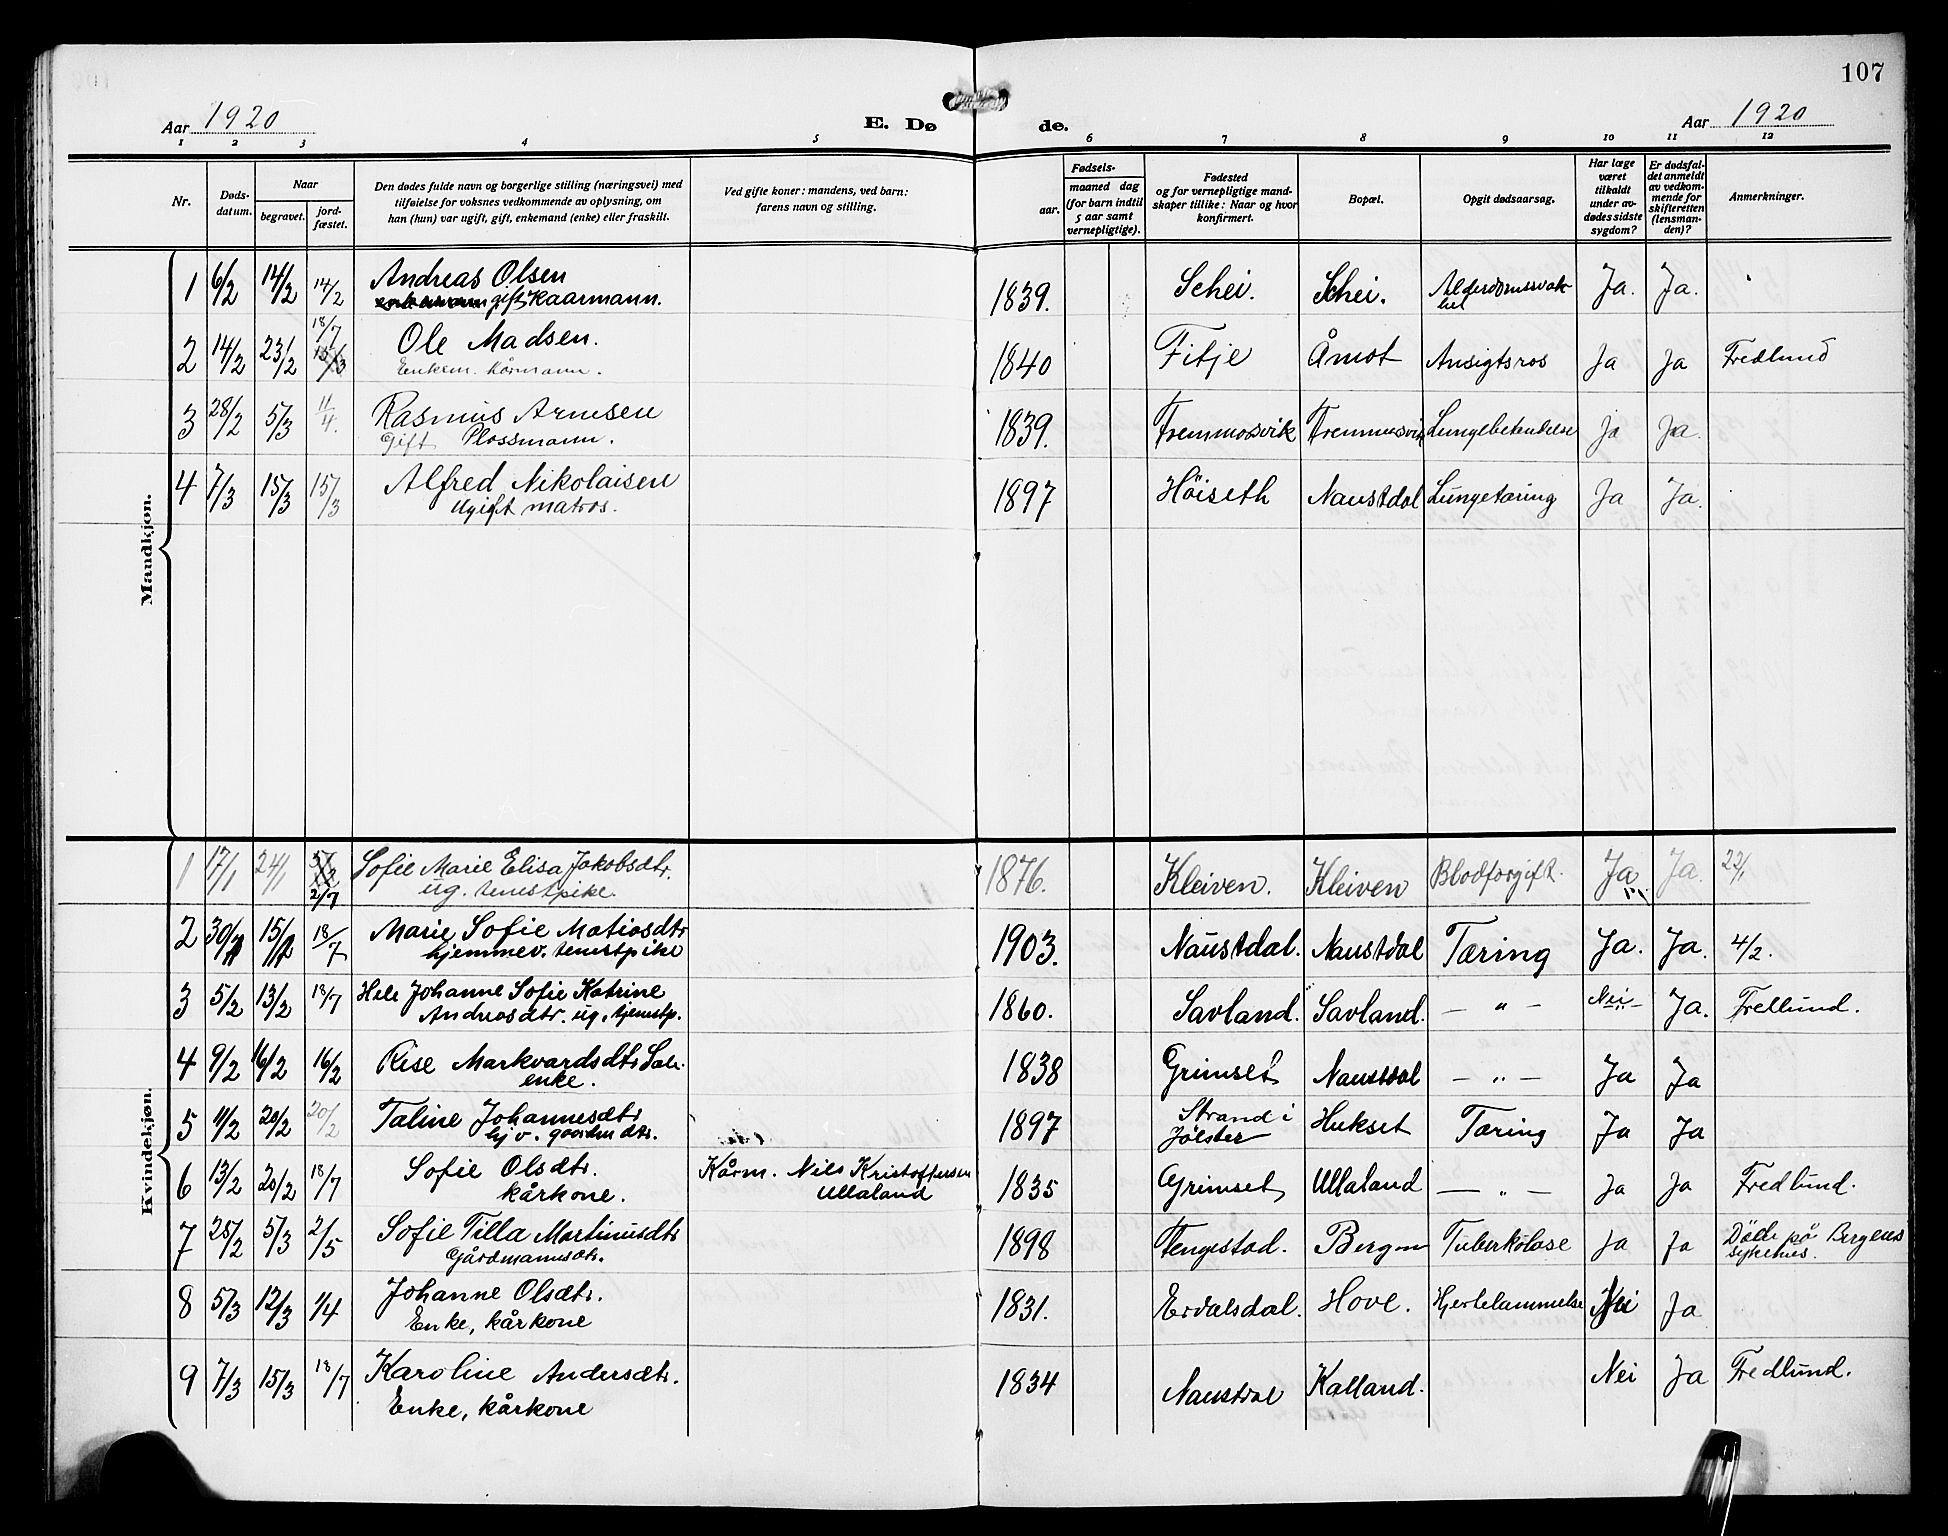 107
Aar 1920
E. Dø
de.
Aar 1920
1 2 3 4 5 6 7 8 9 10 11 12
Nr.
Døds-
datum.
Naar
begravet.
jord-
fæstet.
Den dødes fulde navn og borgerlige stilling (næringsvei) med
tilføielse for voksnes vedkommende av oplysning, om
han (hun) var ugift, gift, enkemand (enke) eller fraskilt.
Ved gifte koner: mandens, ved barn:
farens navn og stilling.
Fødsels-
aar.
maaned dag
(for barn indtil
5 aar samt
vernepligtige).
Fødested
og for vernepligtige mand-
skaper tillike: Naar og hvor
konfirmert.
Bopæl.
Opgit dødsaarsag.
Har læge
været
tilkaldt
under av-
dødes sidste
sygdom?
Er dødsfal-
det anmeldt
av vedkom-
mende for
skifteretten
(lensman-
den)?
Anmerkninger.
Mandkjøn.
1 6/2 14/2 14/2 Andreas Olsen 1839. Schei. Schei. Alderdomssvak- Ja. Ja.
gift Kaarmann. het
18/7
2 14/2 23/2 Ole Madsen. 1840 Fitje Åmot Ansigtsros Ja Ja Fredlund
Enkem. Kårmann.
3 28/2 5/3 11/4. Rasmus Arnesen 1839. Fremmorsvik Lungebetendelse Ja Ja.
Gift Plassmann.
4 7/3 15/3 15/3 Alfred Nikolaisen 1897 Höiseth Naustdal Lungetæring Ja Ja.
Ugift matros.
Kvindekjøn.
1 17/1 24/1 Sofie Marie Elisa Jakobsdtr. 1876. Kleiven. Kleiven Blodforgift. Ja Ja. 22/1
2/7 ug. tenestpike.
2 30/1 15/2 18/7 Marie Sofie Matiasdtr 1903. Naustdal. Naustdal Tæring Ja. Ja. 4/2.
hjemmev. tenestpike
3 5/2 13/2 18/7 Hele Johanne Sofie Katrine 1860. Savland. Savland. — " — Nei Ja. Fredlund.
Andreasdtr. ug. tjenestp.
4 9/2 16/2 16/2 Rise Markvardsdtr 1838 Grimset Naustdal — " — Ja Ja
enke.
5 11/2 20/2 20/2 Taline Johannesdtr 1897 Strand i Hukset Tæring Ja Ja
hj v. gaardm dtr. Jölster
6 13/2 20/2 18/7 Sofie Olsdtr. Kårm. Nils Kristoffersen 1835 Grimset Ullaland — " — Ja Ja Fredlund.
kårkone. Ullaland
7 28/2 5/3 2/5 Sofie Tilla Martinusdtr 1898 Fengestad. Bergen Tuberkulose Ja Ja Døde på Bergens
Gårdmannsdtr. sykehus.
8 5/3 12/3 1/4 Johanne Olsdtr. 1831. Erdalsdal. Hove. Hjertelammelse Nei Ja
Enke, kårkone
9 7/3 15/3 18/7 Karoline Andersdtr. 1834 Naustdal Kalland. Nei Ja Fredlund.
Enke, kårkone